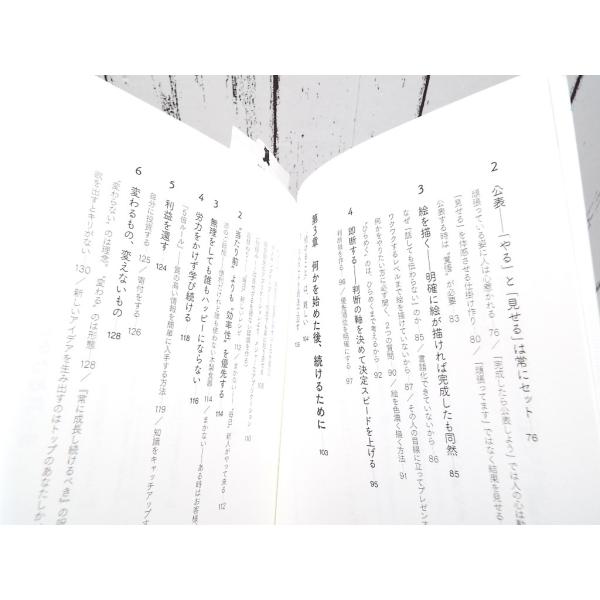 2 公表――「やる」と「見せる」は常にセット 76
頑張っている姿に人は心惹かれる 76 /「完成したら公表しよう」では人の心は動
「見せる」を体感させる仕掛け作り 80 /「頑張ってます」ではなく結果を見せる
公表する時は“覚悟”が必要 83
3 絵を描く――明確に絵が描ければ完成したも同然 85
なぜ「話しても伝わらない」のか 85 / 言語化できていないから 86
ワクワクするレベルまで絵を描けていないから 87 / その人の目線に立ってプレゼンす
何かをやりたい方に必ず聞く、2つの質問 90 / 絵を色濃く描く方法 91
“ひらめく”のは、ひらめくまで考えるから 92
4 即断する――判断の軸を決めて決定スピードを上げる 95
判断軸を作る 96 / 優先順位を明確にする 97
第3章 何かを始めた後、続けるために 103
104
110
2 “当たり前”よりも“効率性”を優先する
新人がやって来る 112
3 無理をしても誰もハッピーにならない 114
114 / まかない――ある時はお客様、
4 労力をかけず学び続ける 118
「5倍ルール」――質の高い情報を簡単に入手する方法 119 / 知識をキャッチアップす
5 利益を還す 124
自分に投資する 125 / 寄付をする 126
6 変わるもの、変えないもの 128
“変わらない”のは理念、“変わる”のは形態 128 /「常に成長し続けるべき」の呪
欲を出すとキリがない 130 / 新しいアイデアを生み出すのはトップのあなたしか